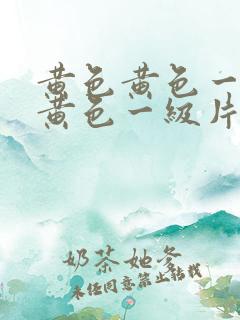 黄色黄色一
黄色一級片
奶茶她爹
未经同意禁止转载